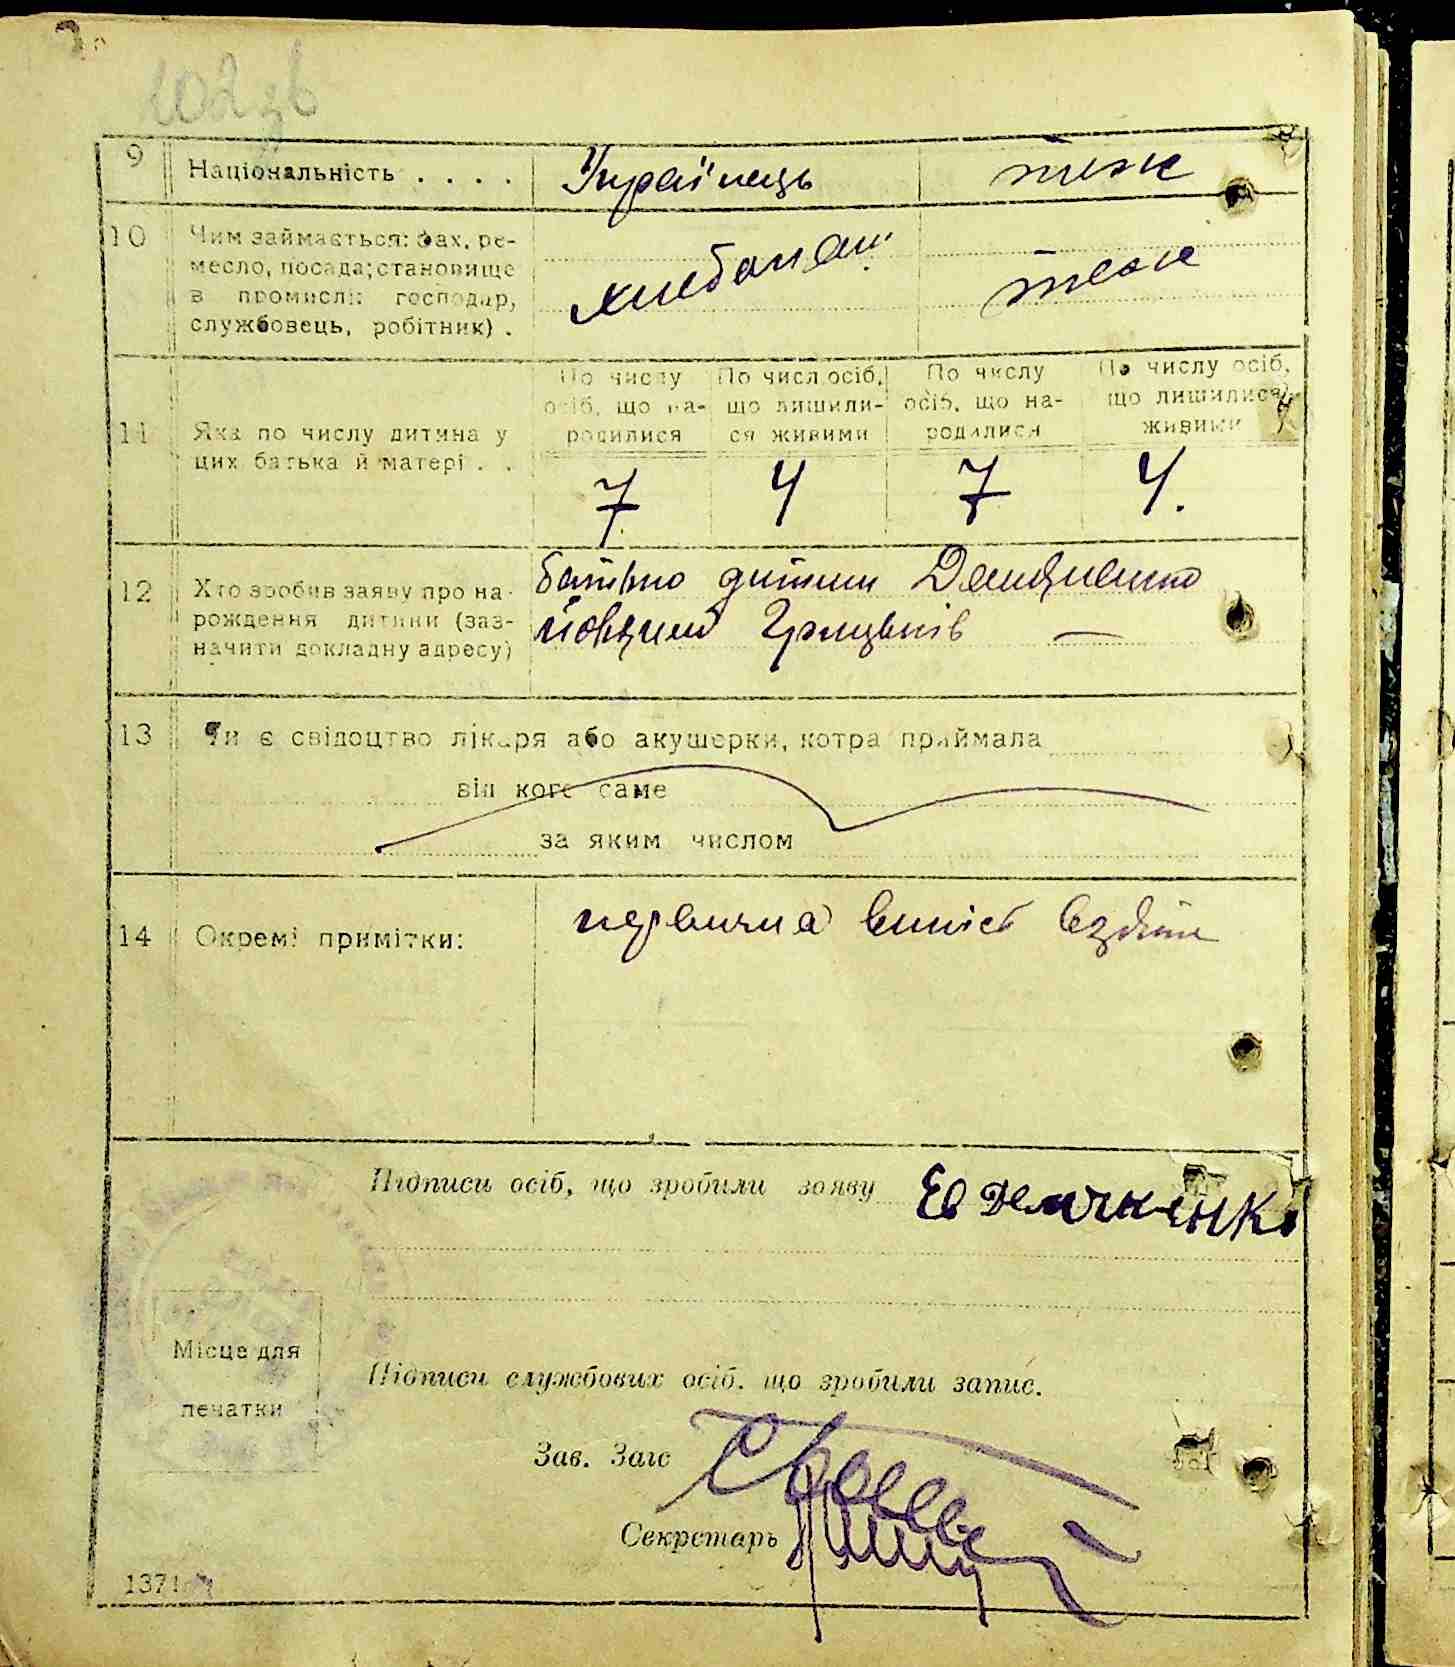 102 зв
9 Національність . . . . Українець теж
10 Чим займається: фах, ре-
месло, посада; становище
в промислі: господар,
службовець, робітник) .
хлібопаш. теж
11 Яка по числу дитина у
цих батька й матері . .
По числу
осіб, що на-
родилися
По числ осіб,
що лишили-
ся живими
По числу
осіб, що на-
родилися
По числу осіб,
що лишилися
живими
7 4 7 4.
12 Хто зробив заяву про на-
рождення дитини (заз-
начити докладну адресу)
батько дитини Демченко
Грицьків —
13 Чи є свідоцтво лікаря або акушерки, котра приймала
від кого саме
за яким числом
14 Окремі примітки:
первична випись
Підписи осіб, що зробили заяву Ев Демченко
Місце для
печатки
Підписи службових осіб, що зробили запис.
Зав. Загс
Секретарь
1371